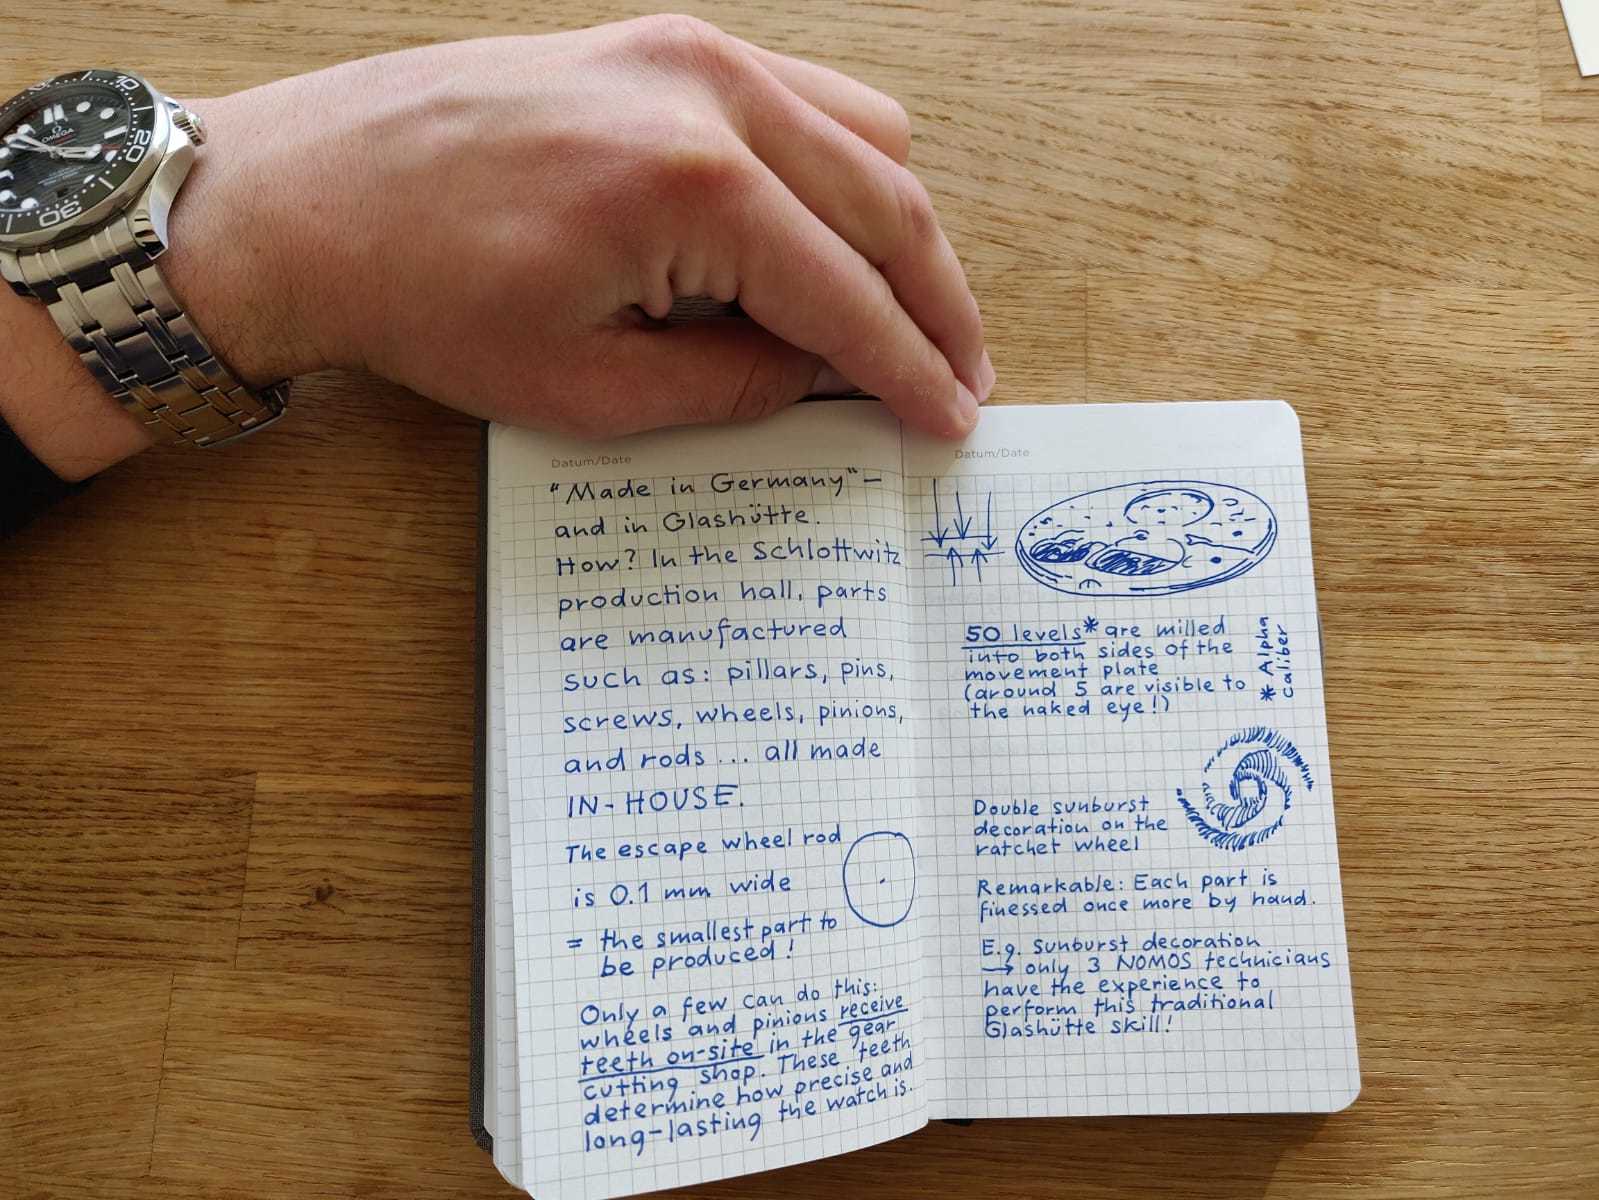 10
20
30
OMEGA
Datum/Date
"Made in Germany" –
and in Glashütte.
How? In the Schlottwitz
production hall, parts
are manufactured
such as: pillars, pins,
screws, wheels, pinions,
and rods ... all made
IN-HOUSE.
The escape wheel rod
is 0.1 mm wide
= the smallest part to
be produced!
Only a few can do this:
wheels and pinions receive
teeth on-site in the gear
cutting shop. These teeth
determine how precise and
long-lasting the watch is.
Datum/Date
50 levels* are milled
into both sides of the
movement plate
(around 5 are visible to
the naked eye!)
* Alpha
caliber
Double sunburst
decoration on the
ratchet wheel
Remarkable: Each part is
finessed once more by hand.
E.g. sunburst decoration
→ only 3 NOMOS technicians
have the experience to
perform this traditional
Glashütte skill!